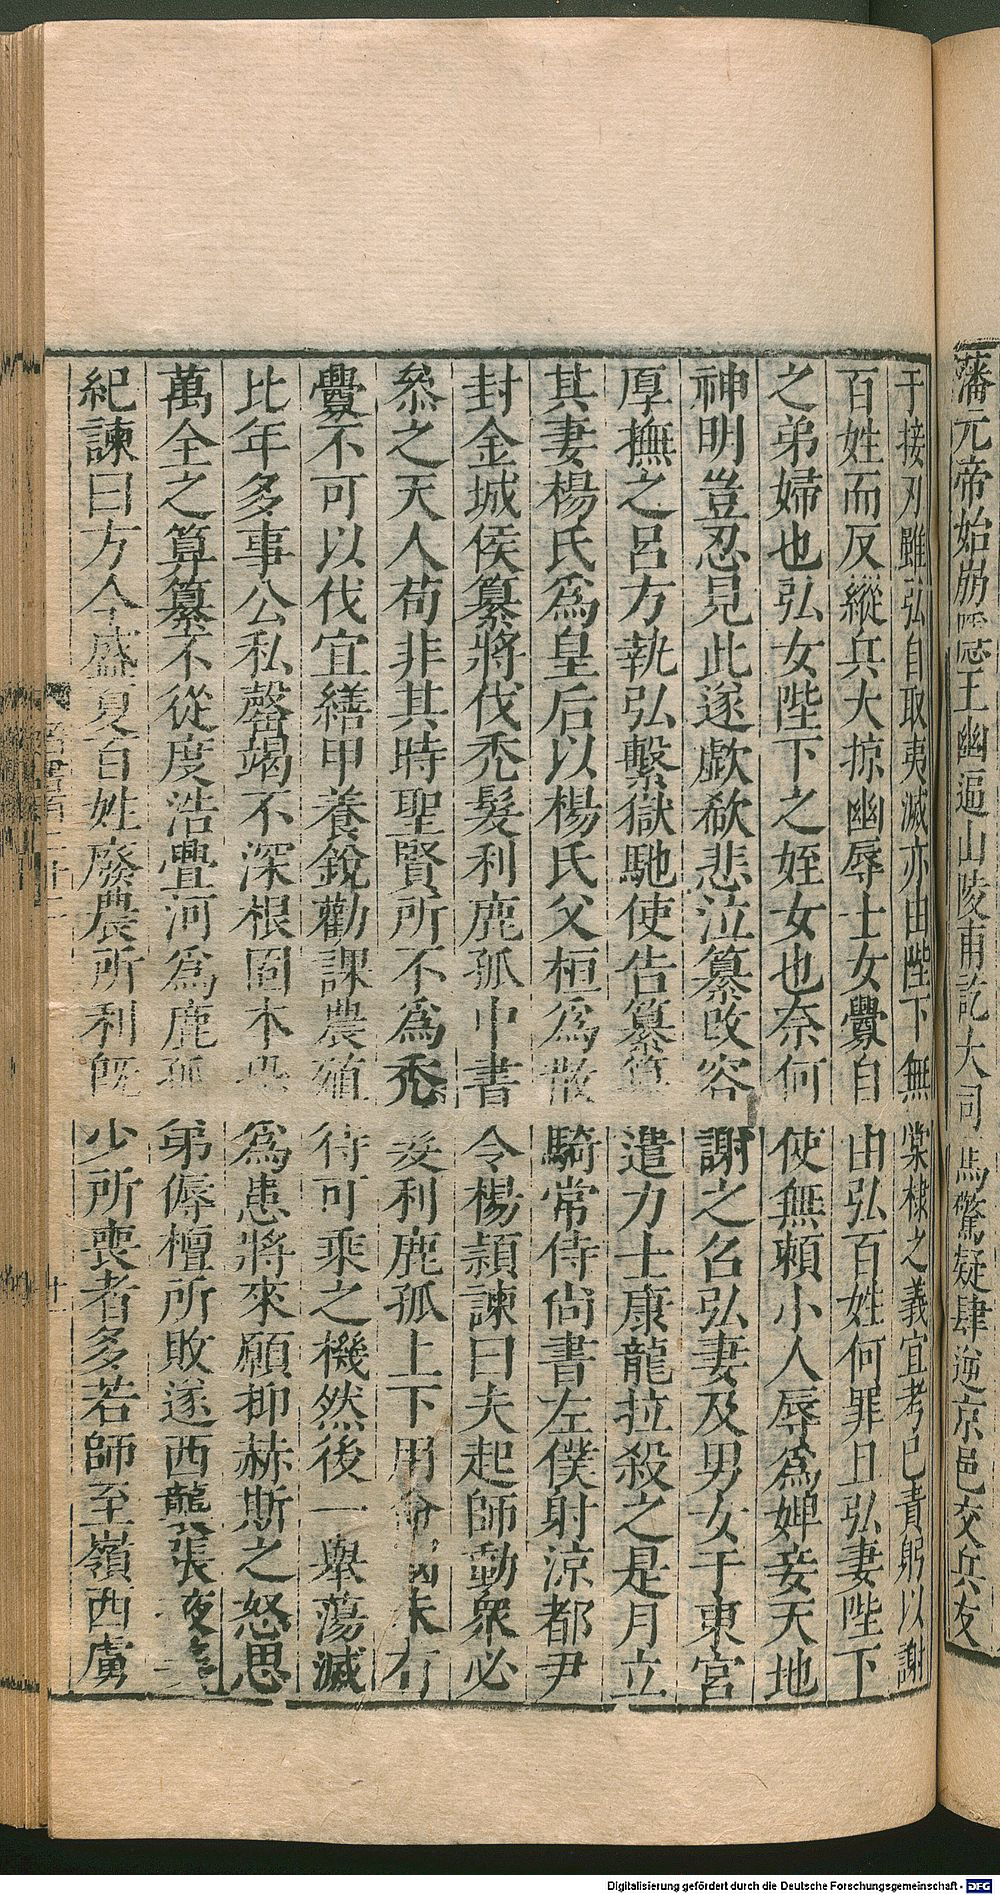 藩元帝始崩隱王幽逼山陵甫訖大司馬驚疑肆逆京邑交兵友
于接刃雖弘自取夷滅亦由陛下無棠棣之義宜考已責躬以謝
百姓而反縱兵大掠幽辱士女釁自由弘百姓何罪且弘妻陛下
之弟婦也弘女陛下之姪女也奈何使無賴小人辱爲婢妾天地
神明豈忍見此遂歔欷悲泣纂改容謝之召弘妻及男女于東宮
厚撫之呂方執弘繫獄馳使告纂纂遣力士康龍拉殺之是月立
其妻楊氏爲皇后以楊氏父桓爲散騎常侍尙書左僕射涼都尹
封金城侯纂將伐禿髮利鹿孤中書令楊頴諫曰夫起師動衆必
叅之天人苟非其時聖賢所不爲禿髮利鹿孤上下用命國未有
釁不可以伐宜繕甲養銳勸課農殖待可乘之機然後一舉蕩滅
比年多事公私罄竭不深根固本恐爲患將來願抑赫斯之怒思
萬全之算纂不從度浩亹河爲鹿孤弟傉檀所敗遂西襲張掖姜
紀諫曰方今盛夏百姓廢農所利旣少所喪者多若師至嶺西虜
晉書百二十二
十一
Digitalisierung gefördert durch die Deutsche Forschungsgemeinschaft - DFG